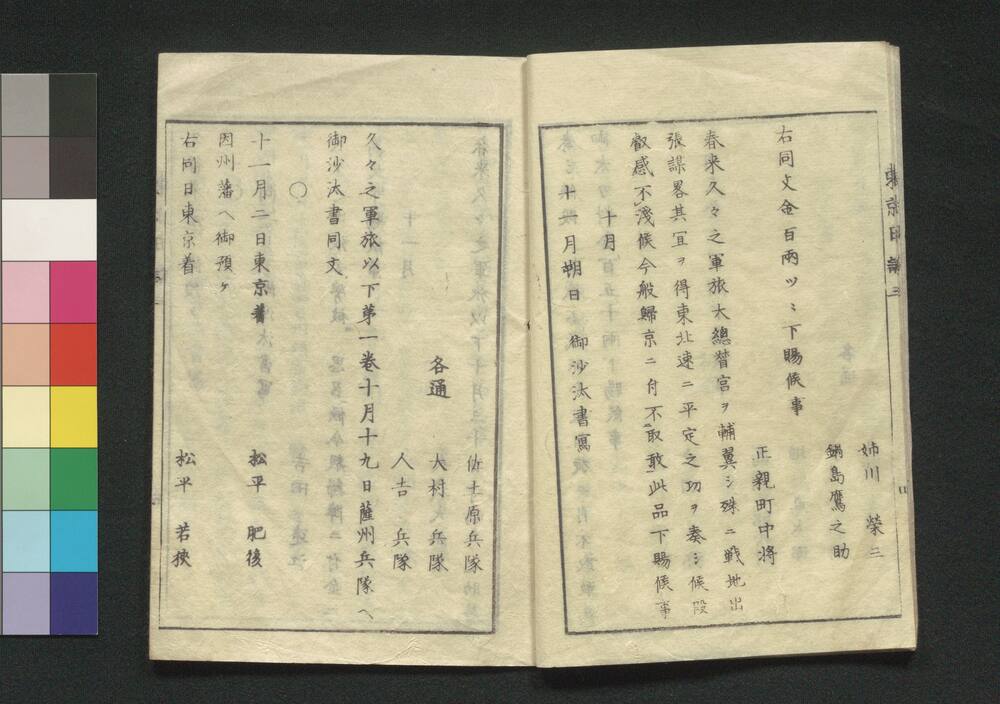 東京日誌三
姉川 榮三
鍋島鷹之助
右同文金百兩ツヽ下賜候事
正親町中将
春来久々之軍旅大總督宮ヲ輔翼シ殊ニ戦地出
張謀畧其宜ヲ得東北速ニ平定之功ヲ奏シ候段
叡感不淺候今般歸京ニ付不取敢此品下賜候事
十月
十一月朔日 御沙汰書寫
佐土原兵隊
各通 大村兵隊
人吉 兵隊
久々之軍旅以下第一卷十月十九日薩州兵隊ヘ
御沙汰書同文
○
十一月二日東京着 松平 肥後
因州藩ヘ御預ケ
右同日東京着 松平 若狹